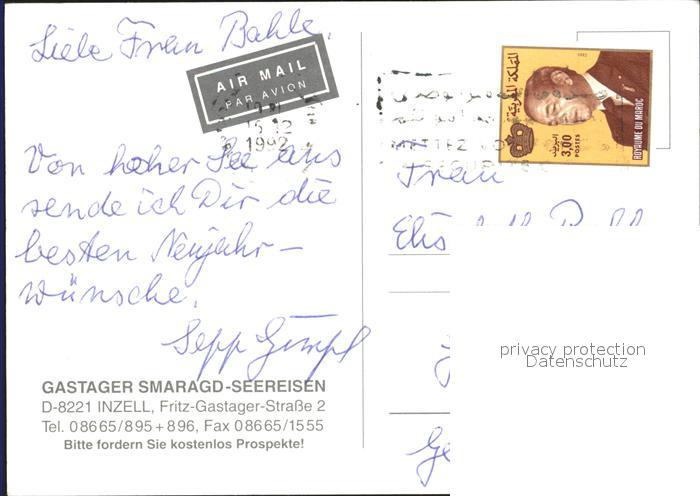 Liebe Frau Bahle,
AIR MAIL
PAR AVION
12
1992
Von hoher See aus
sende ich Dir die
besten Neujahr-
wünsche.
Sepp Gimpl
GASTAGER SMARAGD-SEEREISEN
D-8221 INZELL, Fritz-Gastager-Straße 2
Tel. 08665/895+896, Fax 08665/1555
Bitte fordern Sie kostenlos Prospekte!
المملكة المغربية
1992
البريد
3,00
POSTES
ROYAUME DU MAROC
Frau
privacy protection
Datenschutz